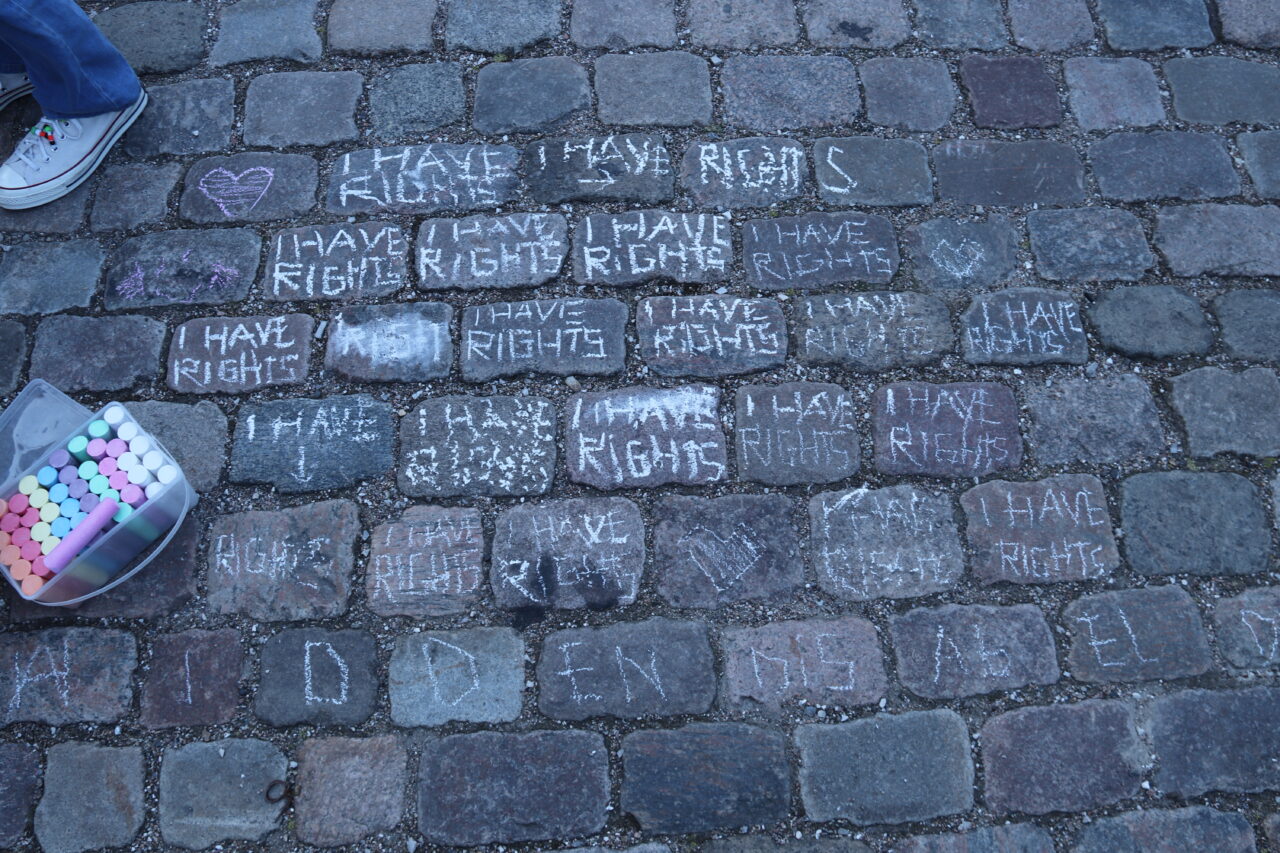 I HAVE I HAVE RIGHTS S
RIGHTS
I HAVE I HAVE I HAVE I HAVE
RIGHTS RIGHTS RIGHTS RIGHTS
I HAVE I HAVE I HAVE I HAVE I HAVE
RIGHTS RIGHTS RIGHTS RIGHTS RIGHTS
I HAVE I HAVE I HAVE I HAVE I HAVE
I RIGHTS RIGHTS RIGHTS
RIGHTS I HAVE I HAVE I HAVE
RIGHTS RIGHT RIGHTS
HIDDEN DIS Ab EL D